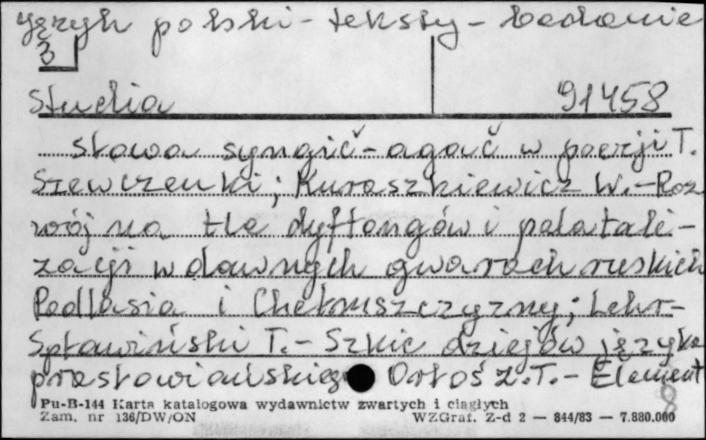 język polski - teksty - badanie
3
Studia 91458
słowa syngič - agač w poezji T.
Szewczenki; Kuraszkiewicz W. - Roz
wój na tle dyftongów i palatali-
zacji w dawnych gwarach ruskich
Podlasia i Chełmszczyzny; Lehr-
Spławiński T. - Szkic dziejów języka
prasłowiańskiego Ortoś Z. T. - Element
Pu-B-144 Karta katalogowa wydawnictw zwartych i ciągłych
Zam. nr 136/DW/ON WZGraf. Z-d 2 — 844/83 — 7.880.000